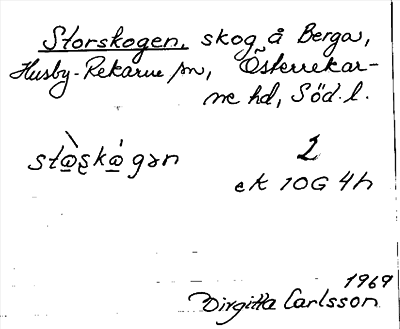 Storskogen, skog å Berga,
Husby-Rekarne sn, Österrekar-
ne hd, Söd. l.
stò̱ʂkó̱gən
2
ek 10G 4h
1969
Birgitta Carlsson